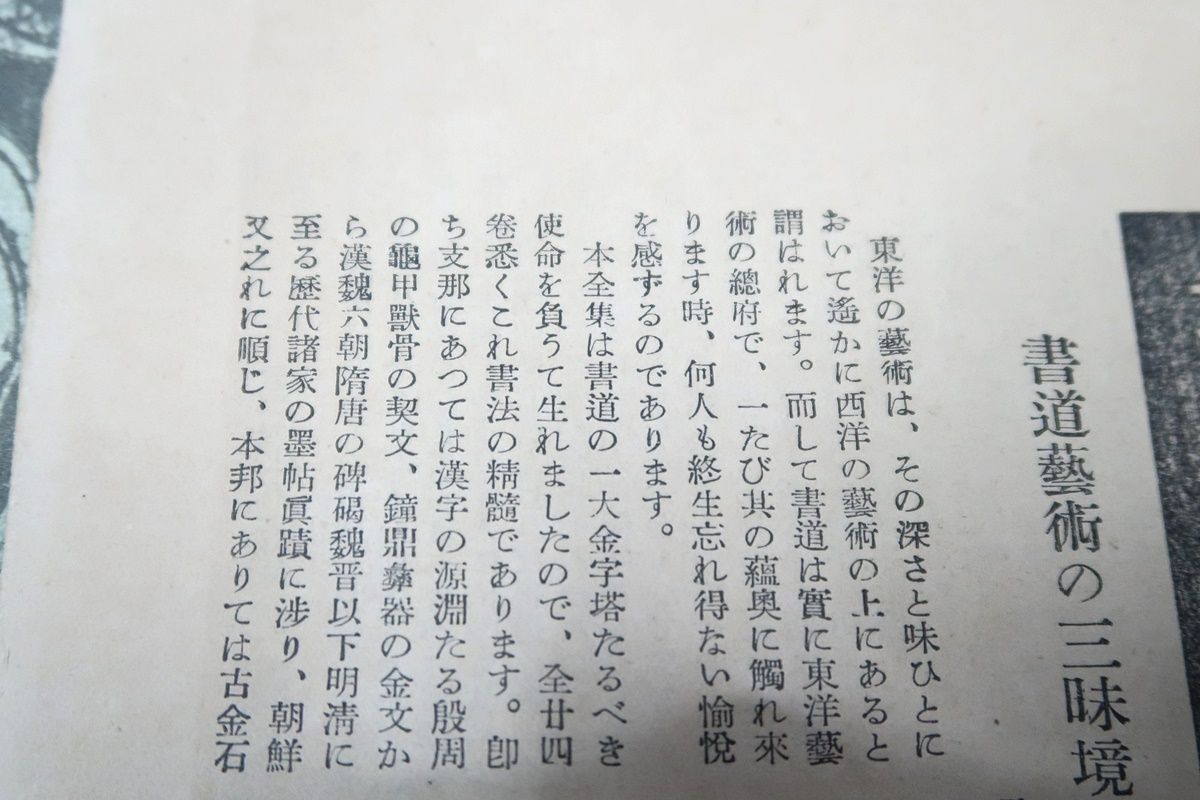 書道藝術の三昧境
東洋の藝術は、その深さと味ひとに
おいて遙かに西洋の藝術の上にあると
謂はれます。而して書道は實に東洋藝
術の總府で、一たび其の蘊奧に觸れ來
ります時、何人も終生忘れ得ない愉悅
を感ずるのであります。
本全集は書道の一大金字塔たるべき
使命を負うて生れましたので、全廿四
卷悉くこれ書法の精髓であります。卽
ち支那にあつては漢字の源淵たる殷周
の龜甲獸骨の契文、鐘鼎彝器の金文か
ら漢魏六朝隋唐の碑碣魏晋以下明淸に
至る歷代諸家の墨帖眞蹟に涉り、朝鮮
又之れに順じ、本邦にありては古金石